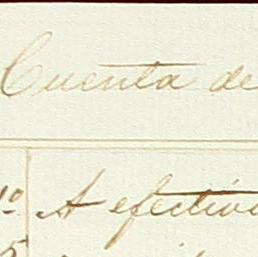 Cuenta de
A efectivo